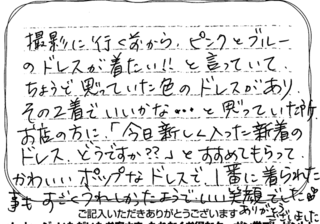 撮影に行く前から、ピンクとブルー
のドレスが着たい!!と言っていて、
ちょうど思っていた色のドレスがあり
その2着でいいかな…と思っていた所
お店の方に「今日新しく入った新着の
ドレス、どうですか??」とすすめてもらって、
かわいいポップなドレスで、一番に着られた
事もすごくうれしかったようでいい笑顔でした
ご記入いただきありがとうございます
ありがとうございました